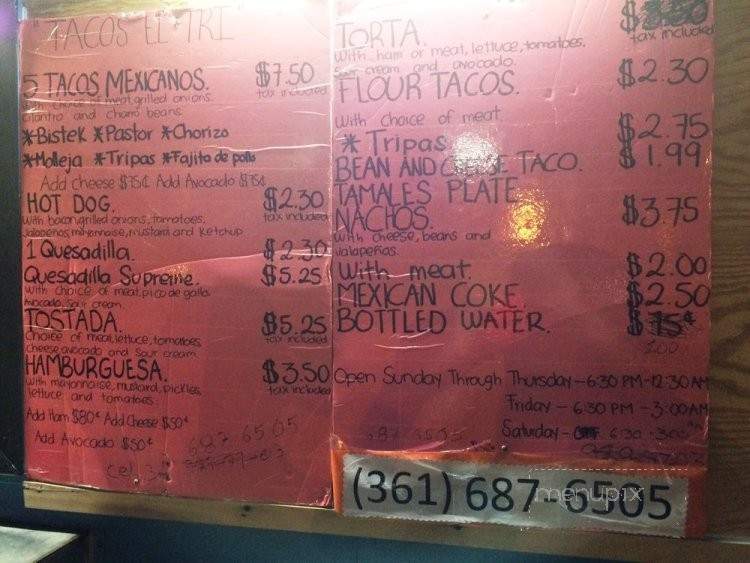 "TACOS EL TRI"
5 TACOS MEXICANOS. $7.50
tax included
With choice of meat, grilled onions,
cilantro and charro beans.
*Bistek *Pastor *Chorizo
*Molleja *Tripas *Fajita de pollo
Add cheese $75¢ Add Avocado $75¢
HOT DOG. $2.30
tax included
With bacon, grilled onions, tomatoes,
Jalapeños, mayonnaise, mustard and Ketchup
1 Quesadilla. $2.30
Quesadilla Supreme. $5.25
With choice of meat, pico de gallo
Avocado, Sour cream
TOSTADA. $5.25
tax included
Choice of meat, lettuce, tomatoes
Cheese avocado and sour cream
HAMBURGUESA. $3.50
tax included
With mayonnaise, mustard, pickles,
lettuce and tomatoes.
Add Ham $80¢ Add Cheese $50¢
Add Avocado $50¢
687 6505
cel
TORTA. $3.50
tax included
With ham or meat, lettuce, tomatoes,
Sour cream and avocado.
FLOUR TACOS. $2.30
With choice of meat.
*Tripas $2.75
BEAN AND CHEESE TACO. $1.99
TAMALES PLATE
NACHOS. $3.75
With cheese, beans and
Jalapeños.
With meat. $2.00
MEXICAN COKE. $2.50
BOTTLED WATER. $75¢
1.00
Open Sunday Through Thursday - 6:30 PM - 12:30 AM
Friday - 6:30 PM - 3:00AM
Saturday - 6:30 - 3:00 AM
687 6505
(361) 687-6505
menupix